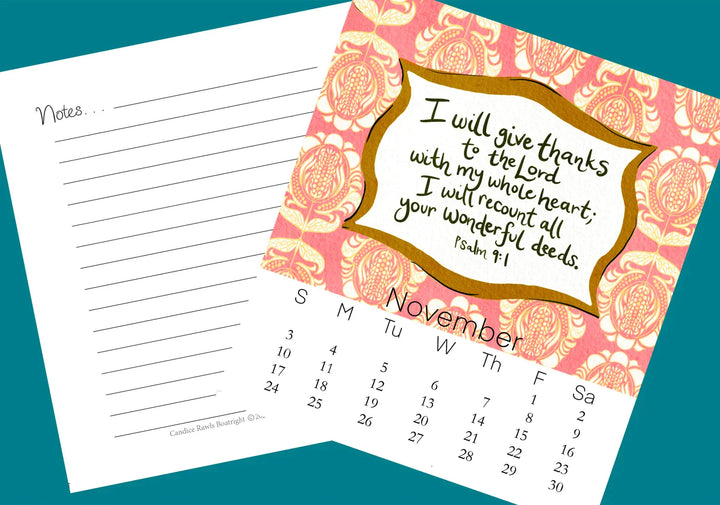 Notes. . .
Candice Rawls Boatright ©2
I will give thanks
to the Lord
with my whole heart;
I will recount all
your wonderful deeds.
Psalm 9:1
November
S M Tu W Th F Sa
1 2
3 4 5 6 7 8 9
10 11 12 13 14 15 16
17 18 19 20 21 22 23
24 25 26 27 28 29 30